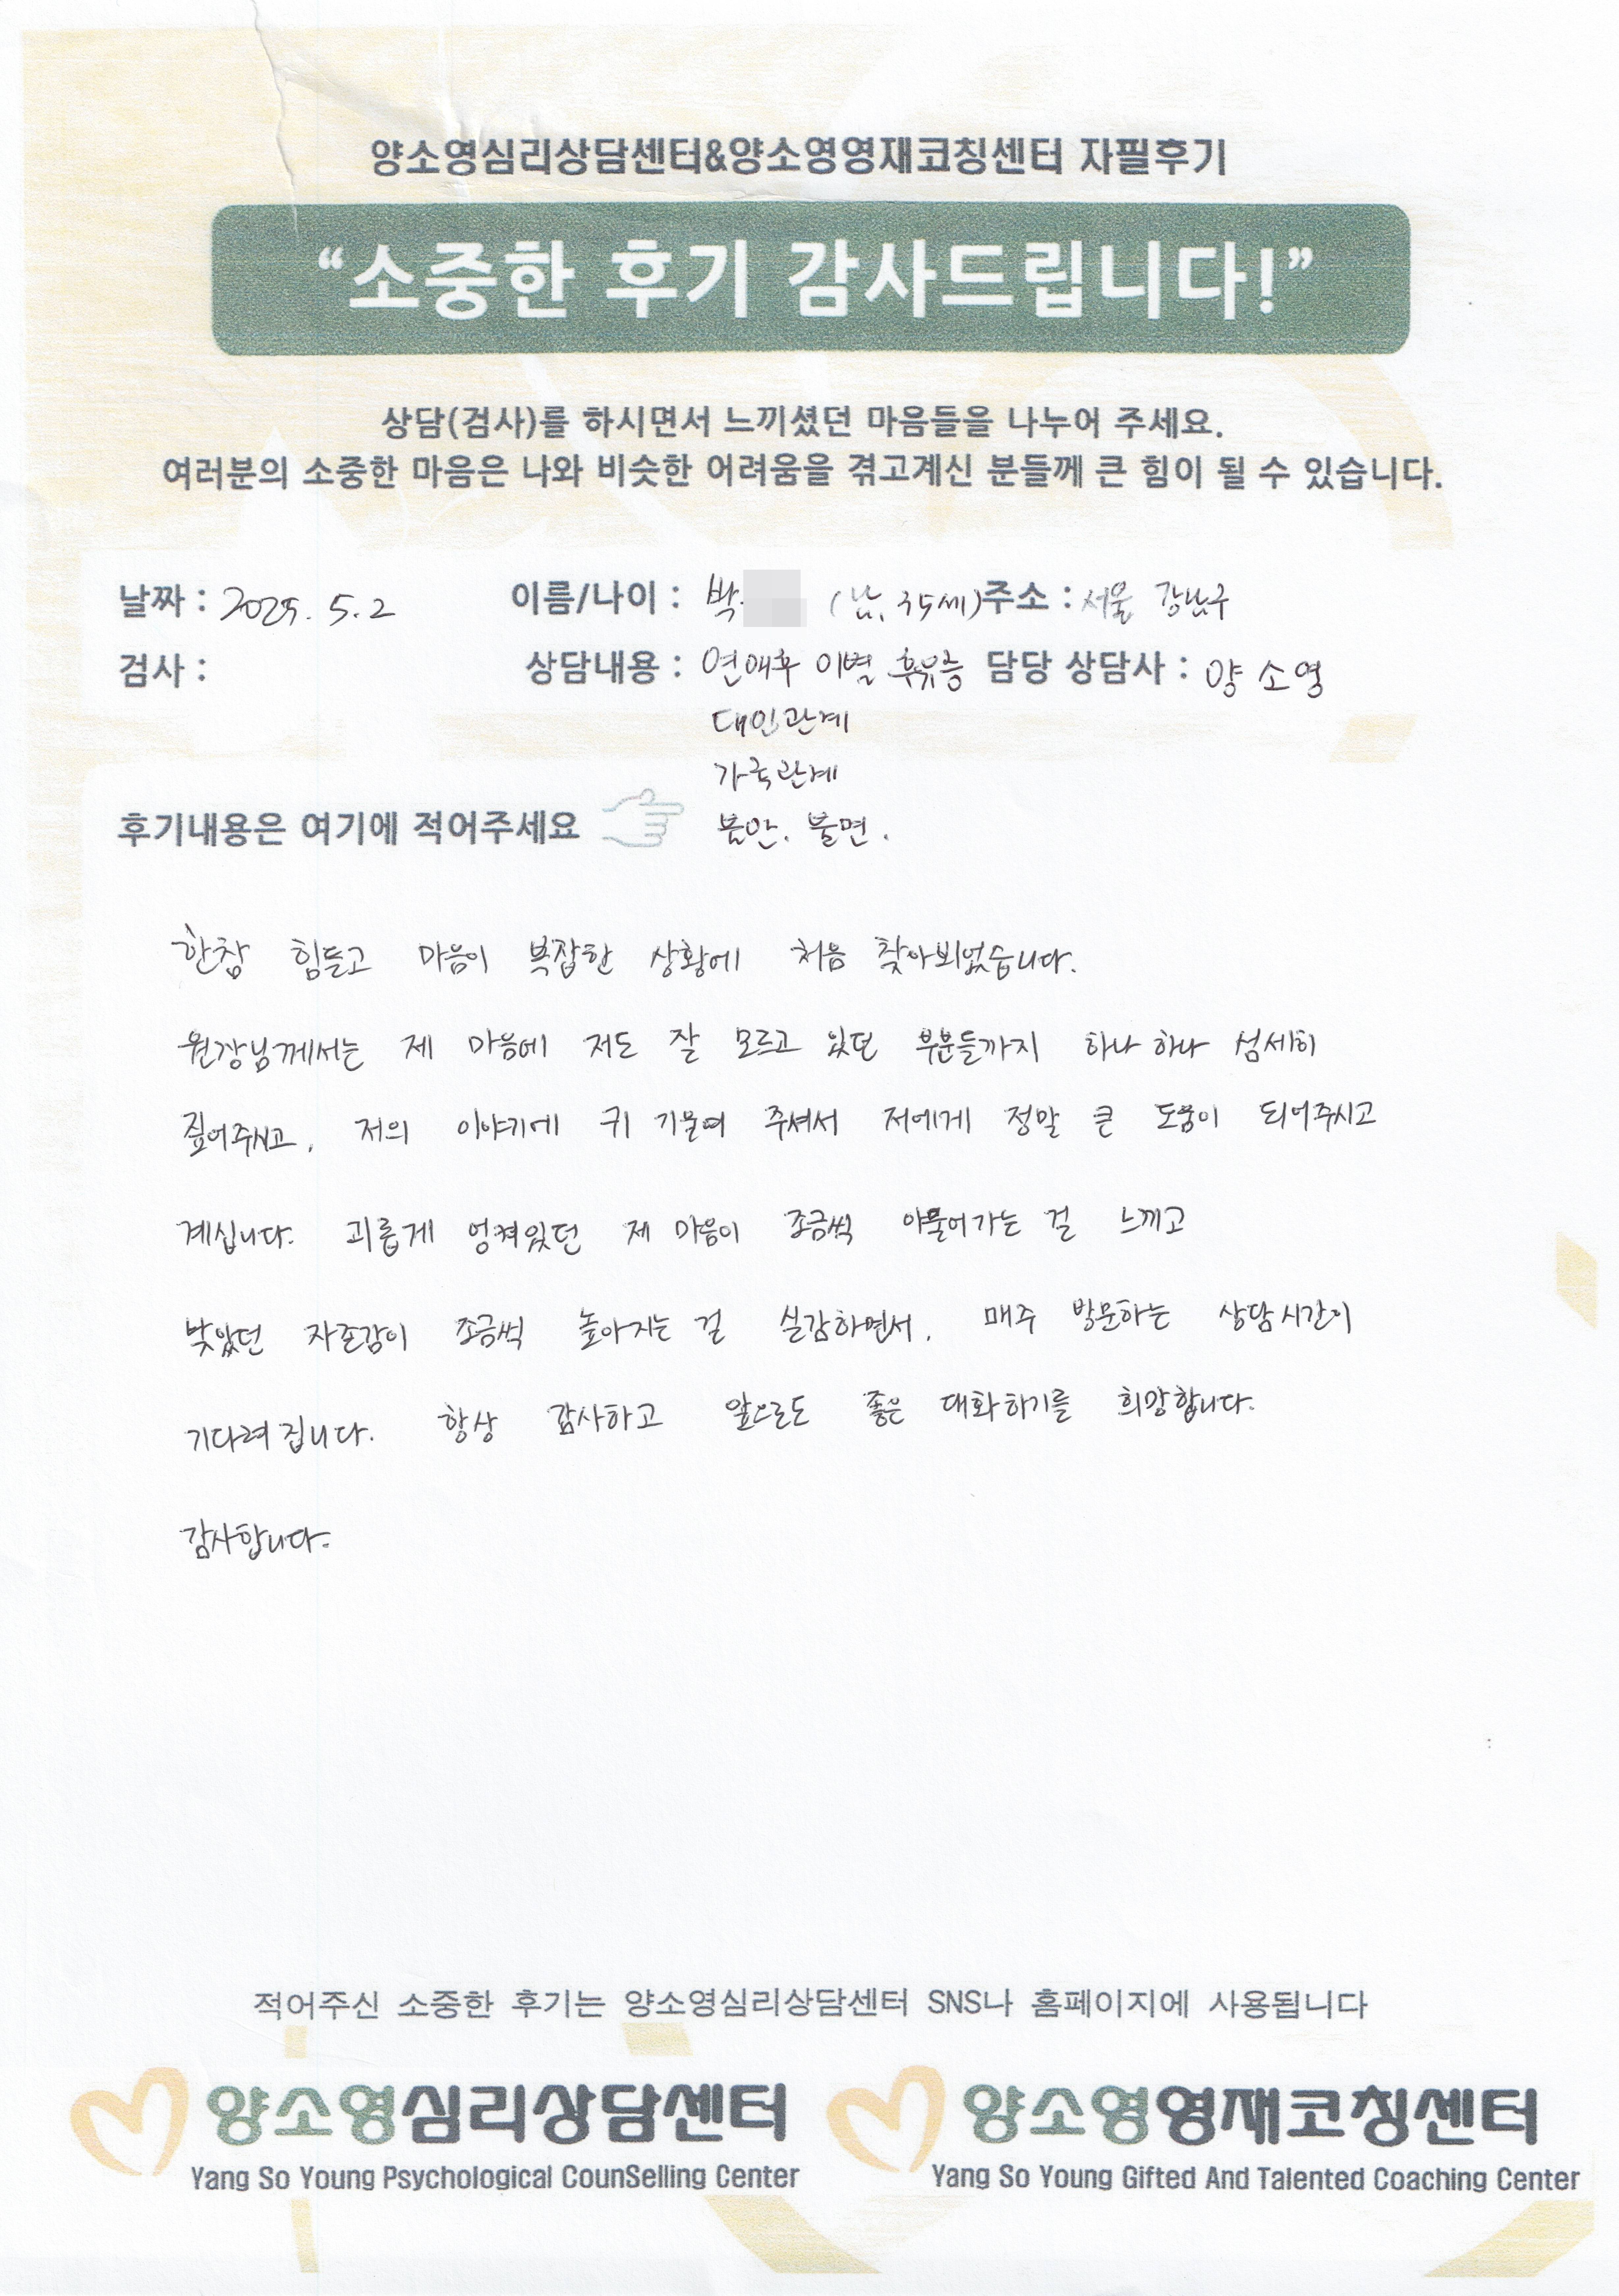 양소영심리상담센터&양소영영재코칭센터 자필후기
“소중한 후기 감사드립니다!”
상담(검사)를 하시면서 느끼셨던 마음들을 나누어 주세요.
여러분의 소중한 마음은 나와 비슷한 어려움을 겪고계신 분들께 큰 힘이 될 수 있습니다.
날짜 : 2025. 5. 2 이름/나이 : 박 (남, 35세) 주소 : 서울 강남구
검사 : 상담내용 : 연애후 이별 후유증 담당 상담사 : 양소영
대인관계
가족관계
후기내용은 여기에 적어주세요 불안. 불면.
한참 힘들고 마음이 복잡한 상황에 처음 찾아뵈었습니다.
원장님께서는 제 마음에 저도 잘 모르고 있던 부분들까지 하나 하나 섬세히
짚어주시고, 저의 이야기에 귀 기울여 주셔서 저에게 정말 큰 도움이 되어주시고
계십니다. 괴롭게 엉켜있던 제 마음이 조금씩 아물어가는 걸 느끼고
낮았던 자존감이 조금씩 높아지는 걸 실감하면서, 매주 방문하는 상담시간이
기다려집니다. 항상 감사하고 앞으로도 좋은 대화하기를 희망합니다.
감사합니다.
적어주신 소중한 후기는 양소영심리상담센터 SNS나 홈페이지에 사용됩니다
양소영심리상담센터 양소영영재코칭센터
Yang So Young Psychological CounSelling Center Yang So Young Gifted And Talented Coaching Center